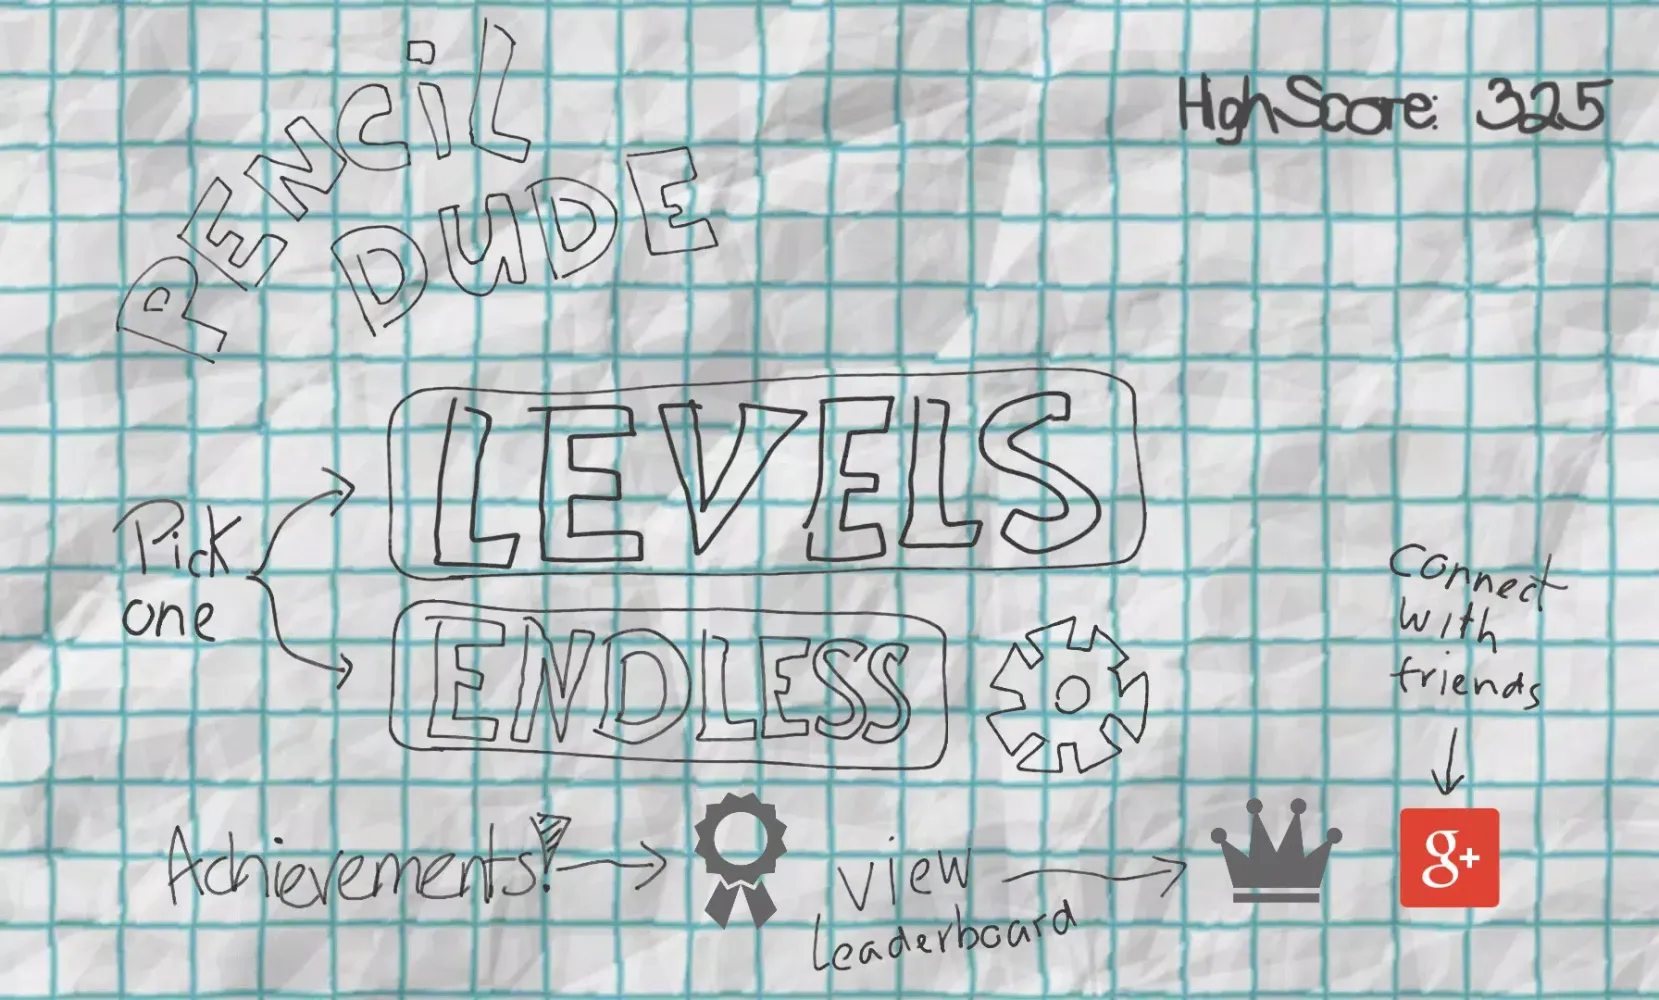 PENCIL
DUDE
HighScore: 325
LEVELS
Pick
one
ENDLESS
Connect
with
friends
Achievements!
view
leaderboard
g+